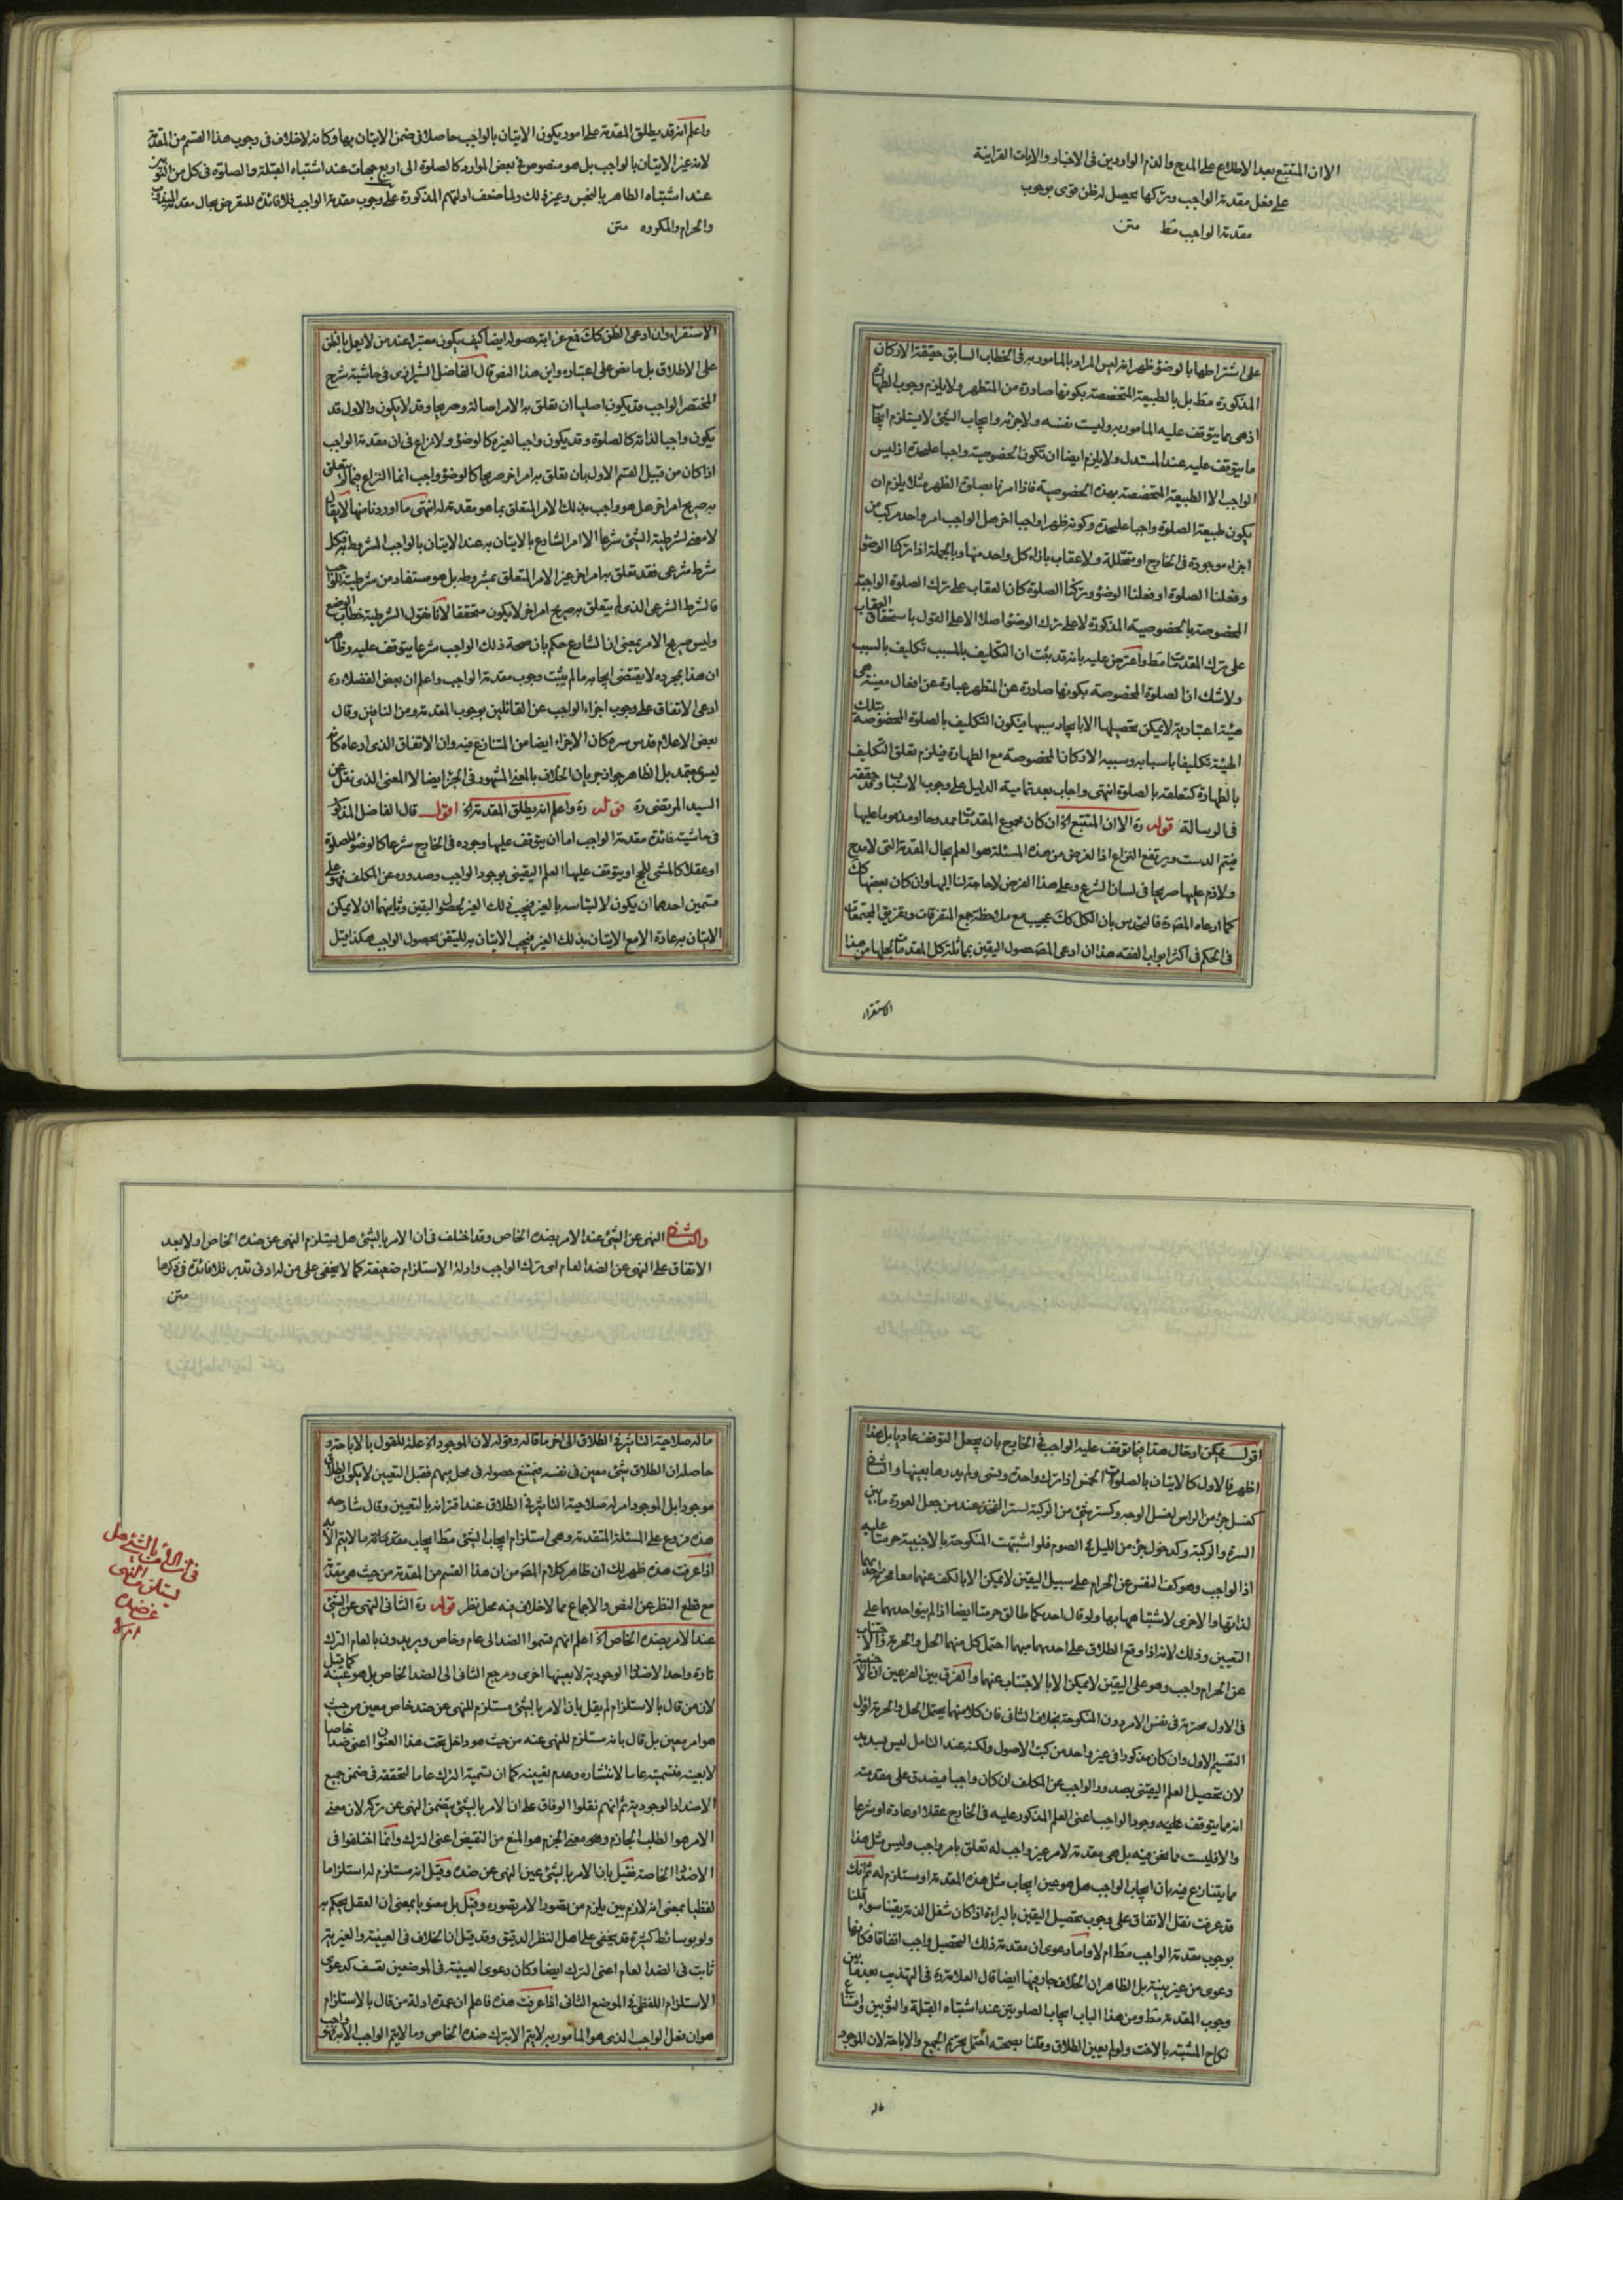 الا ان المتتبع بعد الاطلاع على المدح والذم الواردين فى الاخبار والايات القرانية
على فعل مقدمة الواجب وتركها يحصل له ظن قوى بوجوب
مقدمة الواجب مط متن
على اشتراطها بالوضوء ظهر انه ليس المراد بالمامور به فى الخطاب السابق حقيقة الاركان
المذكورة مط بل بالطبيعة المتخصصة بكونها صادرة من المتطهر ولا يلزم وجوب الطهارة
اذ هى مما يتوقف عليه المامور به وليست نفسه ولا جزئه وايجاب الشئ لا يستلزم ايجاب
ما يتوقف عليه عند المستدل ولا يلزم ايضا ان تكون الخصوصية واجبا عليحدة اذ ليس
الواجب الا الطبيعة المتخصصة بهذه الخصوصية فاذا امرنا بصلوة الظهر مثلا يلزم ان
يكون طبيعة الصلوة واجبا عليحدة وكونه ظهرا واجبا اخر بل الواجب امر واحد مركب من
اجزاء موجودة فى الخارج او متحللة ولا عقاب بازاء كل واحد منها وبالجملة اذا تركنا الوضوء
وفعلنا الصلوة او فعلنا الوضوء وتركنا الصلوة كان العقاب على ترك الصلوة الواجبة
المخصوصة بالخصوصية المذكورة لا على ترك الوضوء اصلا الا على القول باستحقاق العقاب
على ترك المقدمات مط واعترض عليه بانه قد ثبت ان التكليف بالمسبب تكليف بالسبب
ولا شك ان الصلوة المخصوصة بكونها صادرة عن المتطهر عبارة عن افعال معينة هى
هيئة اعتبارية لا يمكن تحصيلها الا بايجاد سببها فيكون التكليف بالصلوة المخصوصة بتلك
الهيئة تكليفا باسبابه وسببه الاركان المخصوصة مع الطهارة فيلزم تعلق التكليف
بالطهارة كتعلقه بالصلوة انتهى واجاب بعد تمامية الدليل على وجوب الاسباب وقد حققه
فى الرسالة قوله ره الا ان المتتبع الخ ان كان مجموع المقدمات ممدوحا او مذموما عليها
فيتم الدست ويرتفع النزاع اذ الغرض من هذه المسئلة هو العلم بحال المقدمة التى لا مدح
ولا ذم عليها صريحا فى لسان الشرع وعلى هذا الفرض لا حاجة لنا اليها وان كان بعضها كك
كما ادعاه المص ره فالتحدس بان الكل كك عجيب مع ملاحظة جمع المتفرقات وتفريق المجتمعات
فى الحكم فى اكثر ابواب الفقه هذا ان ادعى المص حصول اليقين بمماثلة كل المقدمات بحالها من هذا
الاستقراء
واعلم انه قد يطلق المقدمة على امور يكون الايتان بالواجب حاصلا فى ضمن الايتان بها وكانه لا خلاف فى وجوب هذا القسم من المقدمة
لانه عين الايتان بالواجب بل هو منصوص فى بعض الموارد كالصلوة الى اربع جهات عند اشتباه القبلة والصلوة فى كل من الثوبين
عند اشتباه الطاهر بالنجس وغير ذلك ولما ضعف ادلتهم المذكورة على وجوب مقدمة الواجب فلا فائدة للتعرض بحال مقدمة المندوب
والحرام والمكروه متن
الاستقراء وان ادعى الظن كك فمع غرابة حصوله ايضا كيف يكون معتبرا عند من لا يعمل بالظن
على الاطلاق بل ما نص على اعتباره واين هذا النص قال الفاضل الشيرازى فى حاشية شرح
المختصر الواجب قد يكون اصليا ان تعلق به الامر اصالة وصريحا وقد لا يكون والاول قد
يكون واجبا لذاته كالصلوة وقد يكون واجبا لغيره كالوضوء ولا نزاع فى ان مقدمة الواجب
اذا كان من قبيل القسم الاول بان تعلق به امر اخر صريحا كالوضوء واجب انما النزاع فيما لا يتعلق
به صريح امر اخر هل هو واجب بذلك الامر المتعلق بما هو مقدمة له انتهى كما اوردنا منها لا يقال
لا معنى لشرطية الشئ شرعا الا امر الشارع بالايتان به عند الايتان بالواجب المشروط به فكل
شرط شرعى فقد تعلق به امر اخر غير الامر المتعلق بمشروطه بل هو مستفاد من شرطيته للواجب
فالشرط الشرعى الذى لم يتعلق به صريح امر اخر لا يكون متحققا لانا نقول الشرطية خطاب الوضع
وليس صريح الامر بمعنى ان الشارع حكم بان صحة ذلك الواجب شرعا يتوقف عليه وظاهر
ان هذا بمجرده لا يقتضى ايجابه ما لم يثبت وجوب مقدمة الواجب واعلم ان بعض الفضلاء ره
ادعى الاتفاق على وجوب اجزاء الواجب عن القائلين بوجوب المقدمة ومن النافين وقال
بعض الاعلام قدس سره كان الاجزاء ايضا من المتنازع فيه وان الاتفاق الذى ادعاه كانه
ليس بمعتمد بل الظاهر جواز جريان الخلاف بالمعنى المشهور فى الجزء ايضا لا المعنى الذى نقل عن
السيد المرتضى ره قوله ره واعلم انه يطلق المقدمة الخ اقول قال الفاضل المذكور
فى حاشيته فائدة مقدمة الواجب اما ان يتوقف عليها وجوده فى الخارج شرعا كالوضوء للصلوة
او عقلا كالمشى للحج او يتوقف عليها العلم اليقينى بوجود الواجب وصدوره عن المكلف فهو على
قسمين احدهما ان يكون لالتباسه بالغير فيجب ذلك الغير لحصول اليقين وثانيهما ان لا يمكن
الايتان به عادة الا مع الايتان بذلك الغير فيجب الايتان به لليقين بحصول الواجب هكذا قيل
اقول يمكن ان يقال هذا فيما يتوقف عليه الواجب فى الخارج بان يجعل التوقف عاديا بل هذا
اظهر فالاول كالايتان بالصلوات الخمس اذا ترك واحدة ونسى ولم يدرها بعينها والثانى
كغسل جزء من الراس لغسل الوجه وكستر شئ من الركبة لستر الفخذ عند من جعل العورة ما بين
السرة والركبة وكدخول جزء من الليل فى الصوم فلو اشتبهت المنكوحة بالاجنبية حرمتا عليه
اذ الواجب وهو كف النفس عن الحرام على سبيل اليقين لا يمكن الا بالكف عنهما معا فحرم احديهما
لذاتها والاخرى لاشتباهها بها ولو قال احديكما طالق حرمتا ايضا اذا لم ينو احديهما على
التعيين وذلك لانه اذا وقع الطلاق على احديهما مبهما احتمل كل منهما الحل والحرمة فالاجتناب
عن الحرام واجب وهو على اليقين لا يمكن الا بالاجتناب عنهما والفرق بين الفرعين ان الاجنبية
فى الاول محرمة فى نفس الامر دون المنكوحة بخلاف الثانى فان كلا منهما يحتمل الحل والحرمة اقول
التقسيم الاول وان كان مذكورا فى غير واحد من كتب الاصول ولكنه عند التامل ليس بسديد
لان تحصيل العلم اليقينى بصدور الواجب عن المكلف ان كان واجبا فيصدق على مقدمته
انه ما يتوقف عليه وجود الواجب اعنى العلم المذكور عليه فى الخارج عقلا او عادة او شرعا
والا فليست مما نحن فيه بل هى مقدمة لامر غير واجب له تعلق بامر واجب وليس مثل هذا
مما يتنازع فيه بان ايجاب الواجب هل هو عين ايجاب مثل هذه المقدمة او مستلزم له ثم انك
قد عرفت نقل الاتفاق على وجوب تحصيل اليقين بالبراءة اذا كان شغل الذمة يقينا سواء قلنا
بوجوب مقدمة الواجب مط ام لا واما دعوى ان مقدمة ذلك التحصيل واجب اتفاقا فكانها
دعوى من غير بينة بل الظاهر ان الخلاف جار فيها ايضا قال العلامة ره فى التهذيب بعد ما بين
وجوب المقدمة مط ومن هذا الباب ايجاب الصلوتين عند اشتباه القبلة والثوبين وامتناع
نكاح المشتبه بالاخت ولو لم يعين الطلاق وقلنا بصحته احتمل تحريم الجميع والاباحة لان الموجود
ماله
والثانى النهى عن الشئ عند الامر بضده الخاص وقد اختلف فى ان الامر بالشئ هل يستلزم النهى عن ضده الخاص او لا بعد
الاتفاق على النهى عن الضد العام اى ترك الواجب وادلة الاستلزام ضعيفة كما لا يخفى على من له ادنى تدبر فلا فائدة فى ذكرها
متن
فى ان الامر بالشئ هل
يستلزم النهى
عن ضده
ام لا
ماله صلاحية التاثير فى الطلاق الى اخر ما قاله وقوله لان الموجود الخ علة للقول بالاباحة و
حاصله ان الطلاق شئ معين فى نفسه فيمتنع حصوله فى محل مبهم فقبل التعيين لا يكون الطلاق
موجودا بل الموجود امر له صلاحية التاثير فى الطلاق عند اقترانه بالتعيين وقال شارحه
هذه فروع على المسئلة المتقدمة وهى استلزام ايجاب الشئ مط ايجاب مقدماته ما لا يتم الا به
اذا عرفت هذه ظهر لك ان ظاهر كلام المص من ان هذا القسم من المقدمة من حيث هى مقدمة
مع قطع النظر عن النص والاجماع مما لا خلاف فيه محل نظر قوله ره الثانى النهى عن الشئ
عند الامر بضده الخاص الخ اعلم انهم قسموا الضد الى عام وخاص ويريدون بالعام الترك
تارة واحد الاضداد الوجودية لا بعينها اخرى ومرجع الثانى الى الضد الخاص بل هو عينه كما قيل
لان من قال بالاستلزام لم يقل بان الامر بالشئ مستلزم للنهى عن ضد خاص معين من حيث
هو امر معين بل قال بانه مستلزم للنهى عنه من حيث هو داخل تحت هذا العنوان اعنى ضدا خاصا
لا بعينه فتسميته عاما لانتشاره وعدم تعيينه كما ان تسمية الترك عاما لتحققه فى ضمن جميع
الاضداد الوجودية ثم انهم نقلوا الوفاق على ان الامر بالشئ يتضمن النهى عن تركه لان معنى
الامر هو الطلب الجازم وهو معنى الجزم هو المنع من النقيض اعنى الترك وانما اختلفوا فى
الاضداد الخاصة فقيل بان الامر بالشئ عين النهى عن ضده وقيل انه مستلزم له استلزاما
لفظيا بمعنى انه لازم بين يلزم من تصور الامر تصوره وقيل بل معنويا بمعنى ان العقل يحكم به
ولو بوسائط كثيرة قد يخفى على اهل النظر الدقيق وقد قيل ان الخلاف فى العينية والغيرية
ثابت فى الضد العام اعنى الترك ايضا وكان دعوى العينية فى الموضعين تعسف كدعوى
الاستلزام اللفظى فى الموضع الثانى اذا عرفت هذه فاعلم ان عمدة ادلة من قال بالاستلزام
هو ان فعل الواجب الذى هو المامور به لا يتم الا بترك ضده الخاص وما لا يتم الواجب الا به فهو واجب